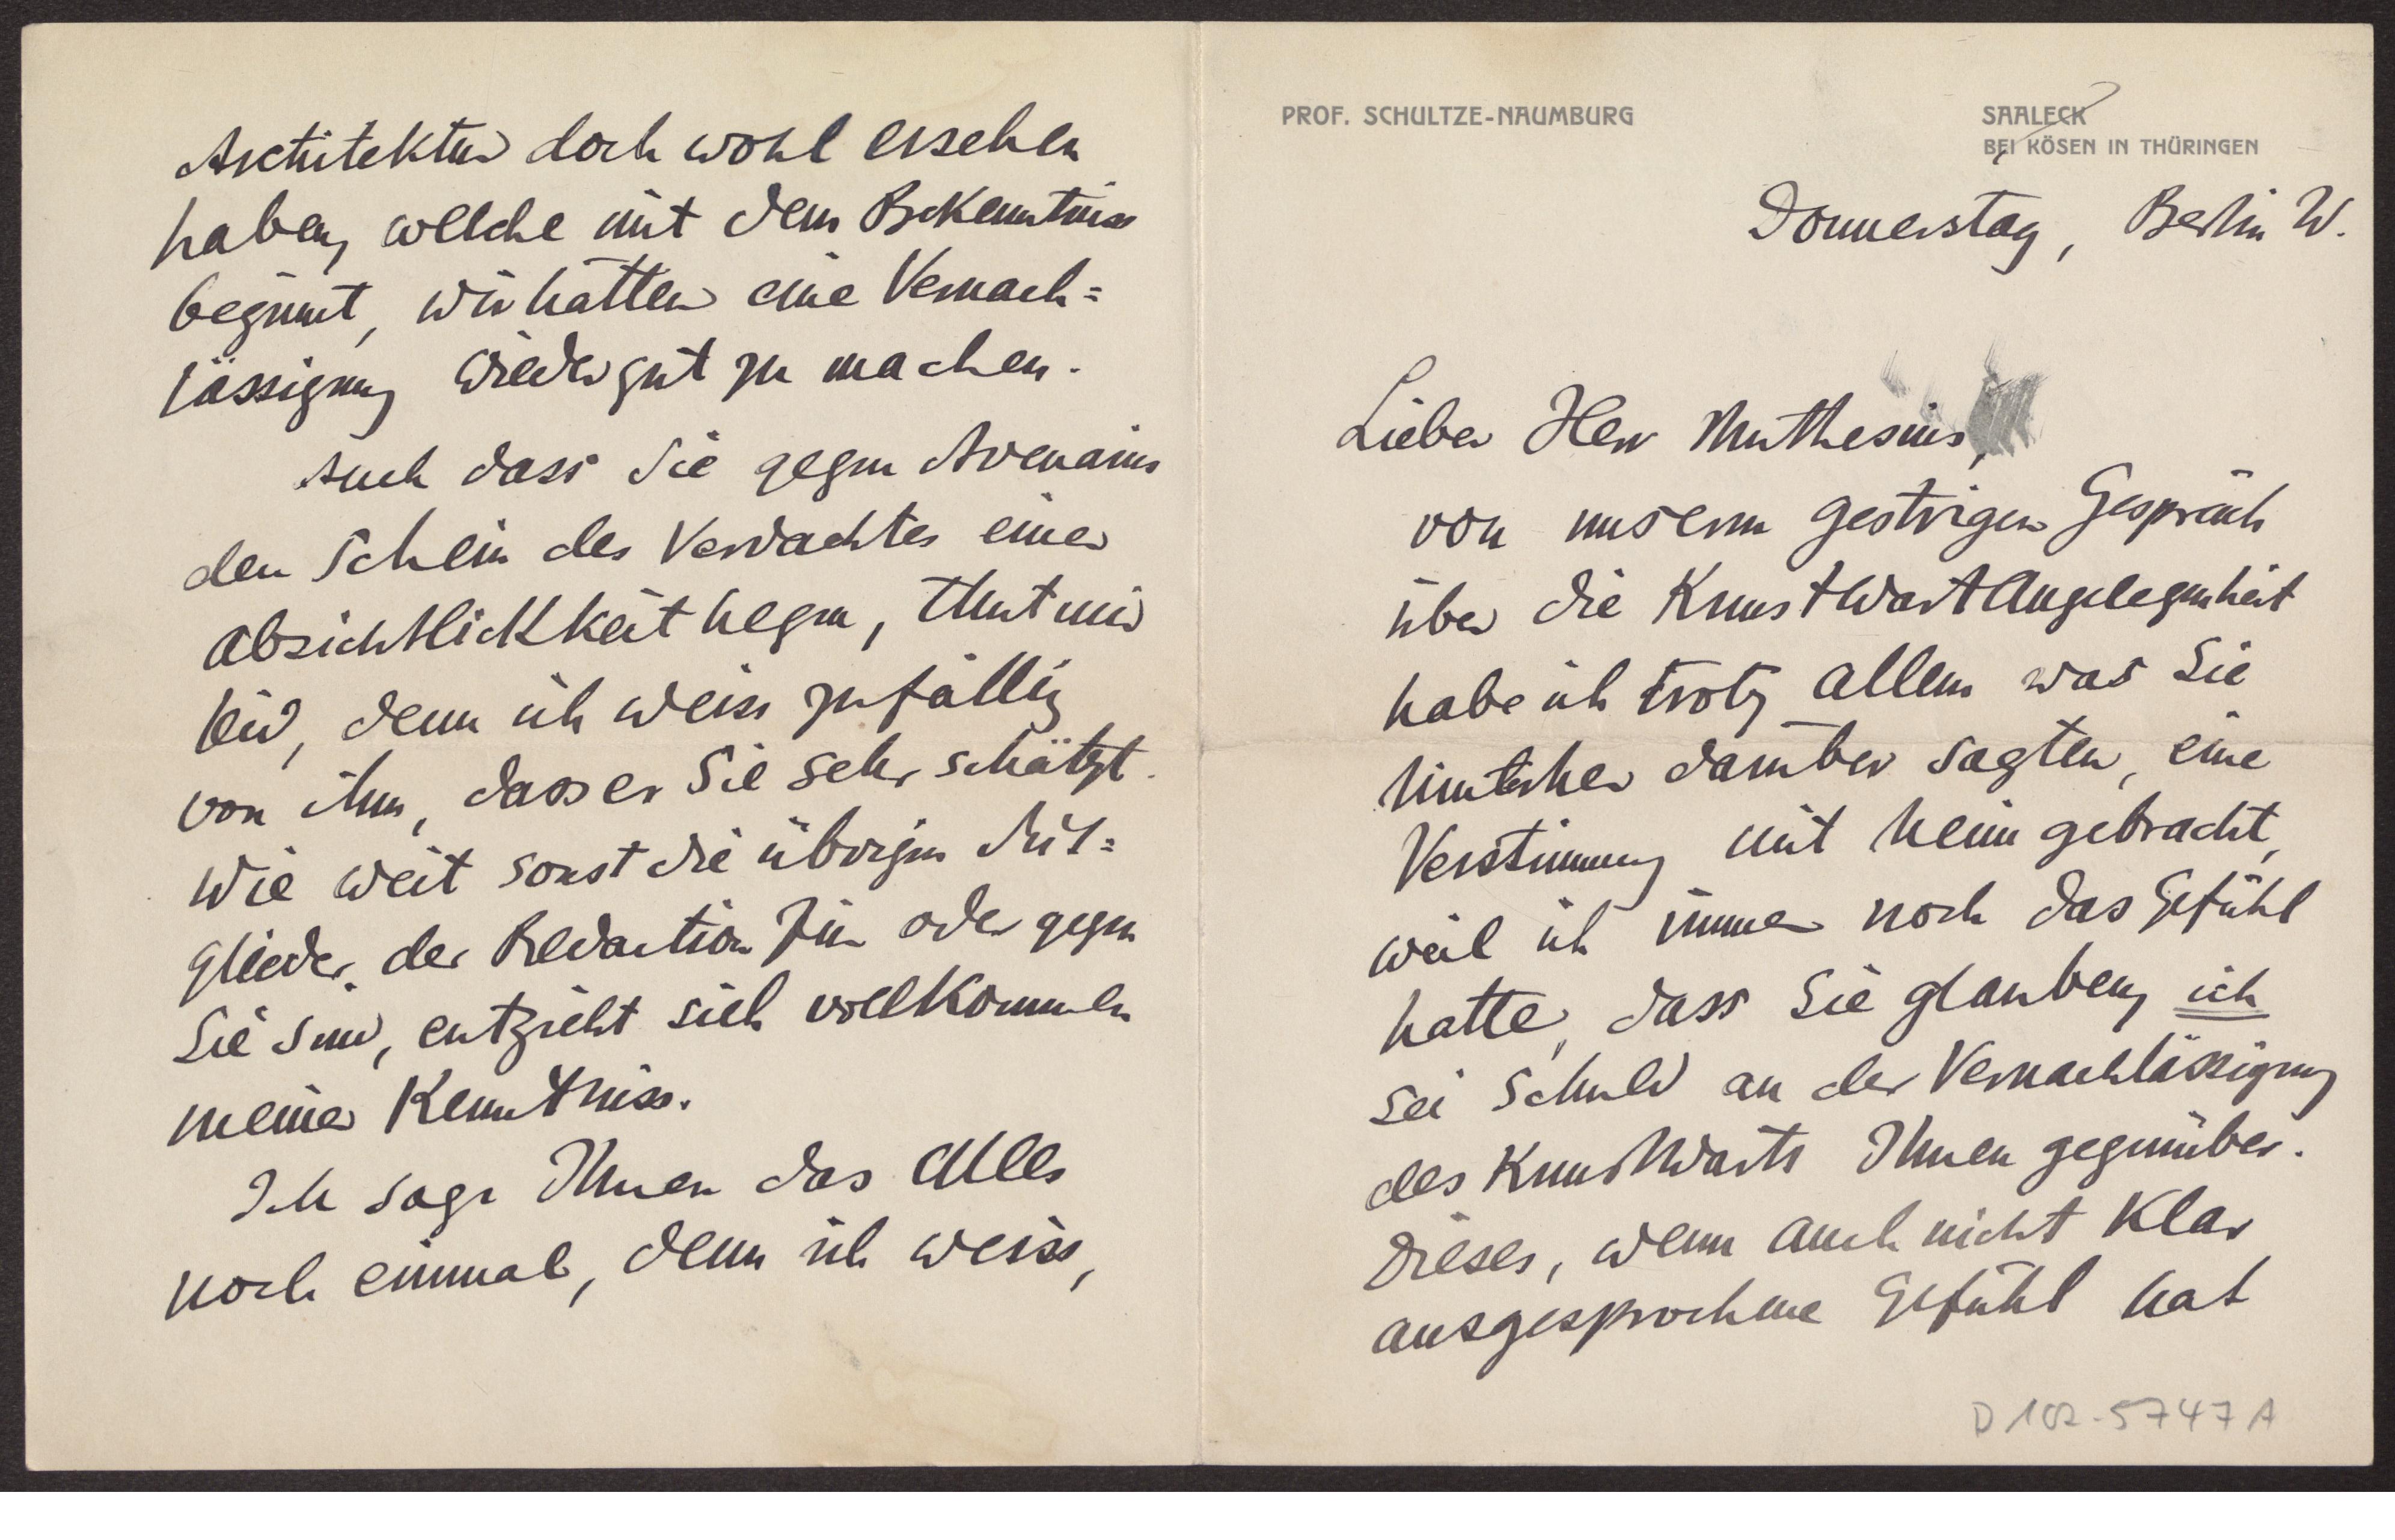 PROF. SCHULTZE-NAUMBURG
SAALECK
BEI KÖSEN IN THÜRINGEN
Donnerstag, Berlin W.
Lieber Herr Muthesius,
von unserm gestrigen Gespräch
über die Kunstwart Angelegenheit
habe ich trotz allem was Sie
hinterher darüber sagten, eine
Verstimmung mit heim gebracht,
weil ich immer noch das Gefühl
hatte, dass Sie glauben, ich
sei Schuld an der Vernachlässigung
des Kunstwarts Ihnen gegenüber.
Dieses, wenn auch nicht klar
ausgesprochene Gefühl hat
D 102-5747 A
Architektur doch wohl ersehen
haben, welche mit dem Bekenntniss
beginnt, wir hätten eine Vernach=
lässigung wieder gut zu machen.
Auch dass Sie gegen Avenarius
den Schein des Verdachtes einer
Absichtlichkeit hegen, thut mir
leid, denn ich weiss zufällig
von ihm, dass er Sie sehr schätzt.
Wie weit sonst die übrigen Mit=
glieder der Redaction für oder gegen
Sie sind, entzieht sich vollkommen
meiner Kenntniss.
Ich sage Ihnen das Alles
noch einmal, denn ich weiss,